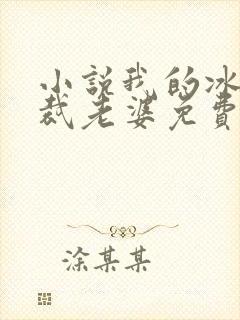 小説我的冰
裁老婆免費
涂某某